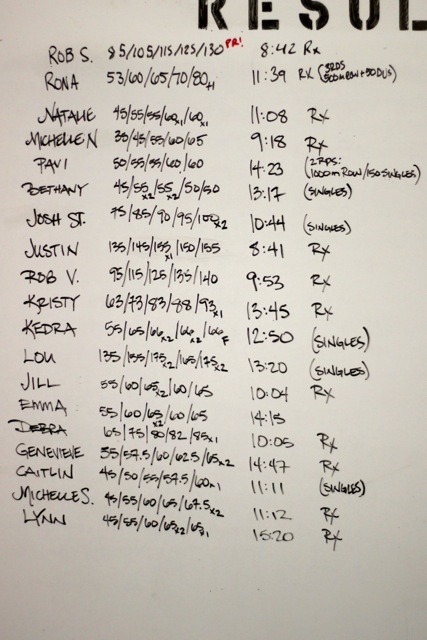 RESUL
ROB S. 85/105/115/125/130 PR! 8:42 Rx
RONA 53/60/65/70/80x1 11:39 RX (3RDS 500m ROW + 50 DUS)
NATALIE 45/55/55/60x1/60x1 11:08 Rx
MICHELLE N 35/45/55/60/65 9:18 Rx
PAVI 50/55/55/60/60 14:23 (2 RDS: 1000m ROW/150 SINGLES)
BETHANY 45/55x2/55x2/50/50 13:17 (SINGLES)
JOSH ST. 75/85/90/95/100x2 10:44 (SINGLES)
JUSTIN 135/145/155x1/150/155 8:41 Rx
ROB V. 95/115/125/135/140 9:53 Rx
KRISTY 63/73/83/88/93x1 13:45 Rx
KEDRA 55/65/66x2/66x2/66F 12:50 (SINGLES)
LOU 135/155/175x2/165/175x2 13:20 (SINGLES)
JILL 55/60/65x2/60/65 10:04 Rx
EMMA 55/60/65x2/60/65 14:15
DEBRA 65/75/80/82/85x1 10:05 Rx
GENEVIEVE 55/57.5/60/62.5/65x2 14:47 Rx
CAITLIN 45/50/55/57.5/60x1 11:11 (SINGLES)
MICHELLE S. 45/55/60/65/67.5x2 11:12 Rx
LYNN 45/55/60/65x2/65x1 15:20 Rx